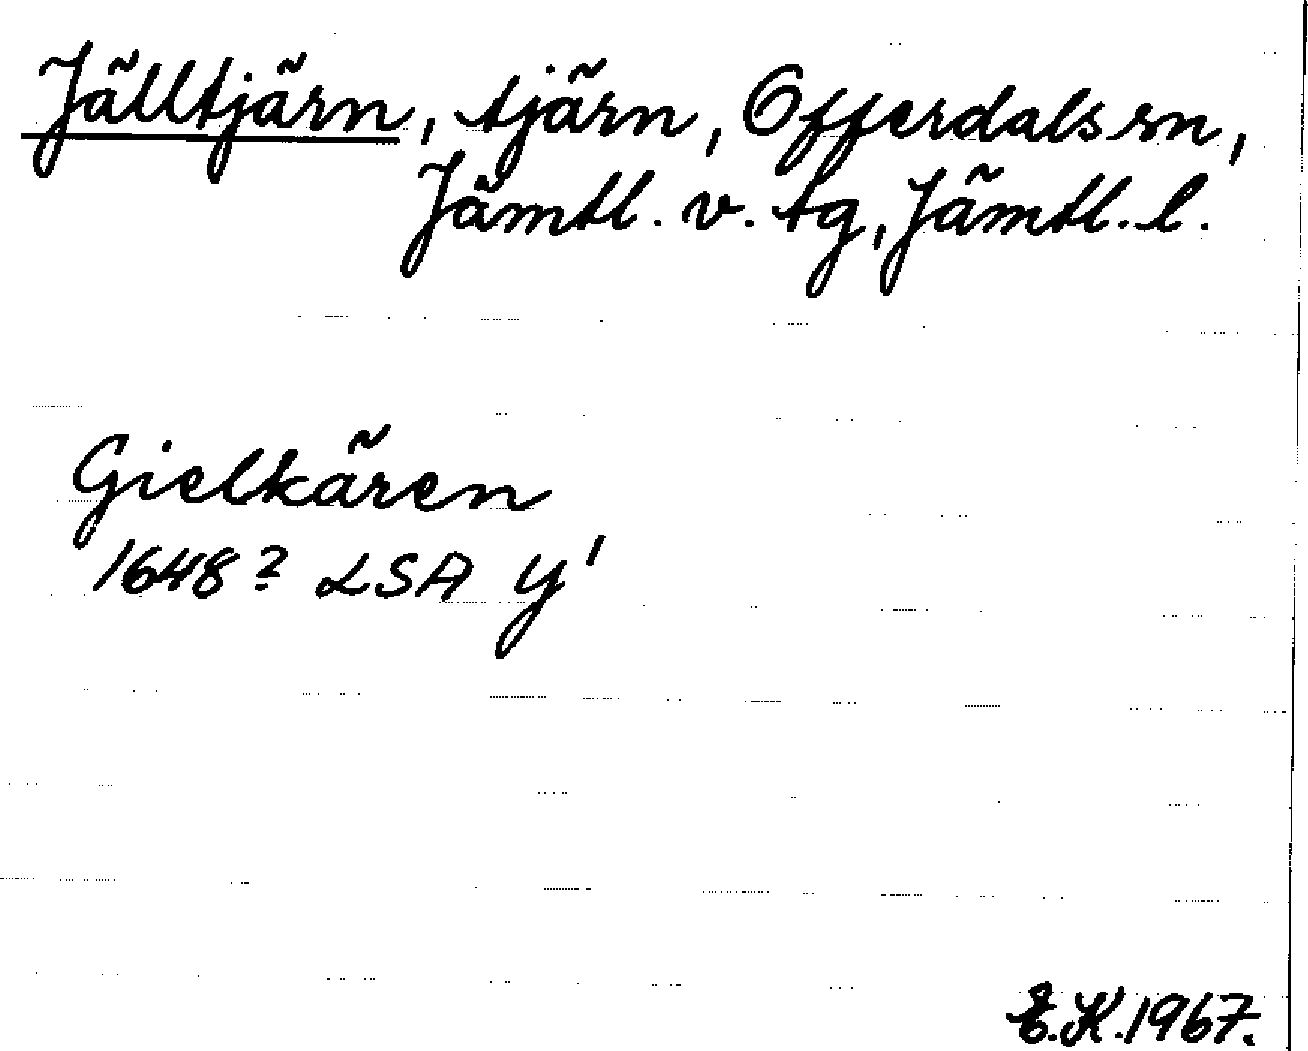 Jälltjärn, tjärn, Offerdals sn,
Jämtl. v. tg, Jämtl. l.
Gielkären
1648? LSA Y'
E.K. 1967.